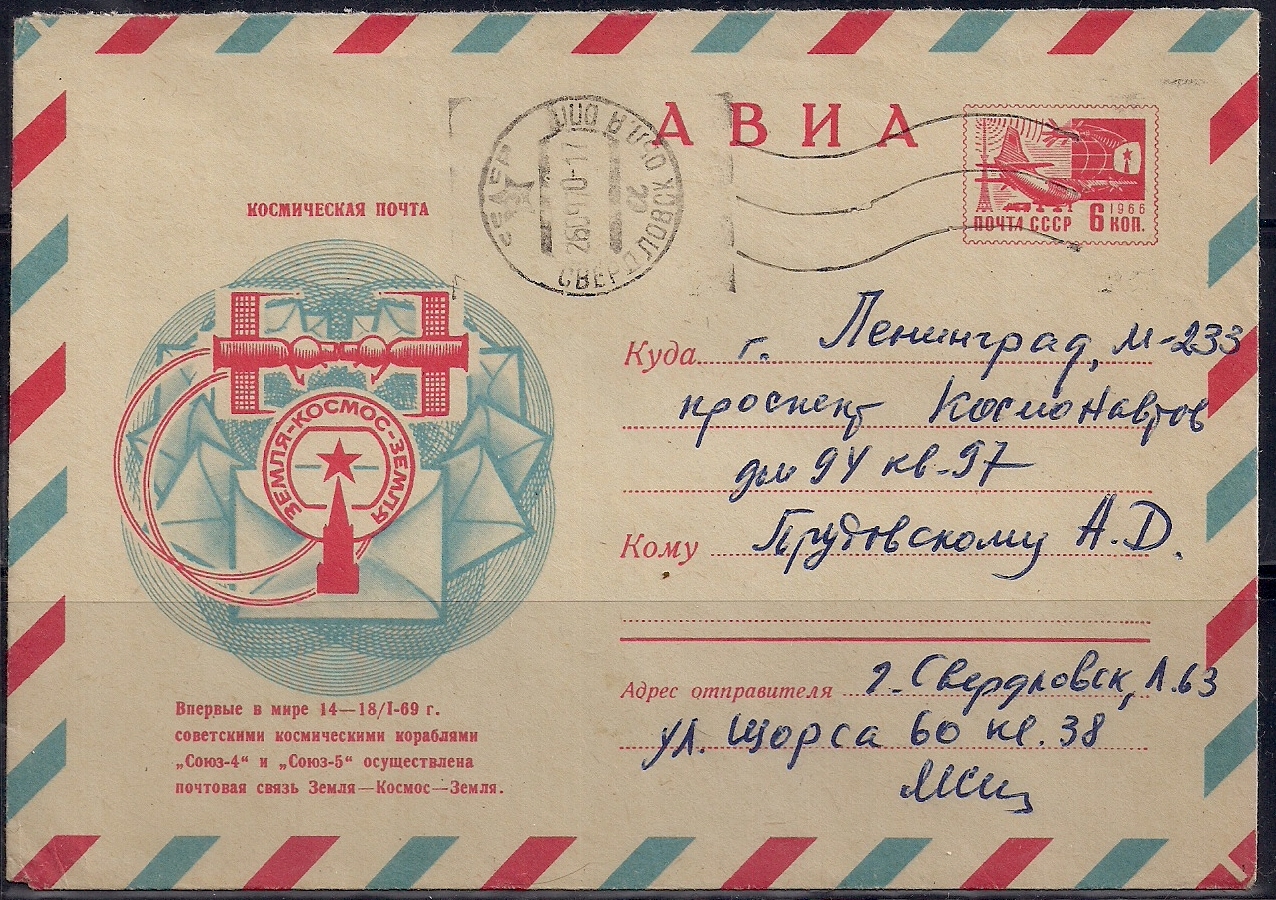 АВИА
КОСМИЧЕСКАЯ ПОЧТА
СВЕРДЛОВСК
ПОЧТА СССР 6 КОП.
1966
ЗЕМЛЯ-КОСМОС-ЗЕМЛЯ
Куда г. Ленинград, М-233
проспект Космонавтов
дом 94 кв-97
Кому Прутовскому А.Д.
Адрес отправителя г. Свердловск, Л.63
ул. Щорса 60 кв. 38
Впервые в мире 14—18/I-69 г.
советскими космическими кораблями
„Союз-4“ и „Союз-5“ осуществлена
почтовая связь Земля—Космос—Земля.